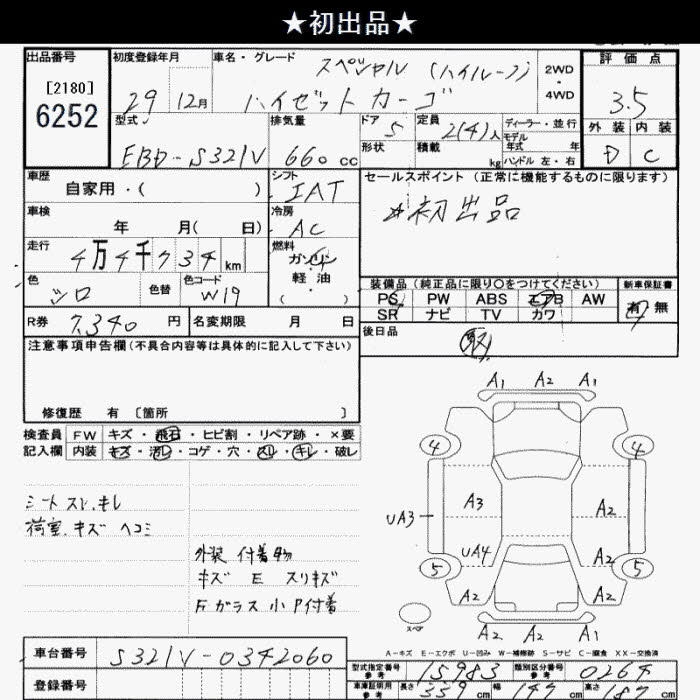 ★初出品★
出品番号
[2180]
6252
初度登録年月
29 12月
車名・グレード
スペシャル (ハイルーフ)
ハイゼットカーゴ
2WD
4WD
評価点
3.5
外装 内装
D C
型式
EBD-S321V
排気量
660 cc
ドア 5
形状
定員 2(4)人
積載 kg
ディーラー・並行
モデル
年式 年
ハンドル 左・右
車歴
自家用・( )
シフト
IAT
セールスポイント (正常に機能するものに限ります)
☆初出品
車検
年 月( 日)
冷房
AC
走行
4万4千734 km
燃料
ガソリン
軽油
( )
色
シロ
色替
色コード
W19
装備品 (純正品に限り○をつけてください)
PS PW ABS エアB AW
SR ナビ TV カワ
新車保証書
有 無
R券 7,340 円
名変期限 月 日
後日品
取
注意事項申告欄 (不具合内容等は具体的に記入して下さい)
修復歴 有 〔箇所 〕
検査員
記入欄
FW キズ・飛石・ヒビ割・リペア跡・×要
内装 キズ・汚レ・コゲ・穴・スレ・キレ・破レ
シートスレ.キレ
荷室.キズ ヘコミ
外装 付着物
キズ E スリキズ
Fガラス小P付着
A1 A2 A1
4 4
A3 A2
UA3
UA4 A2
5 5
A2 A2
A2 A2 A1
スペア
A-キズ E-エクボ U-凹み W-補修跡 S-サビ C-腐食 XX-交換済
車台番号
S321V-0342060
登録番号
型式指定番号
参考
15983
類別区分番号
参考
0264
車庫証明用
参考
長さ 339 cm 幅 147 cm 高さ 187 cm